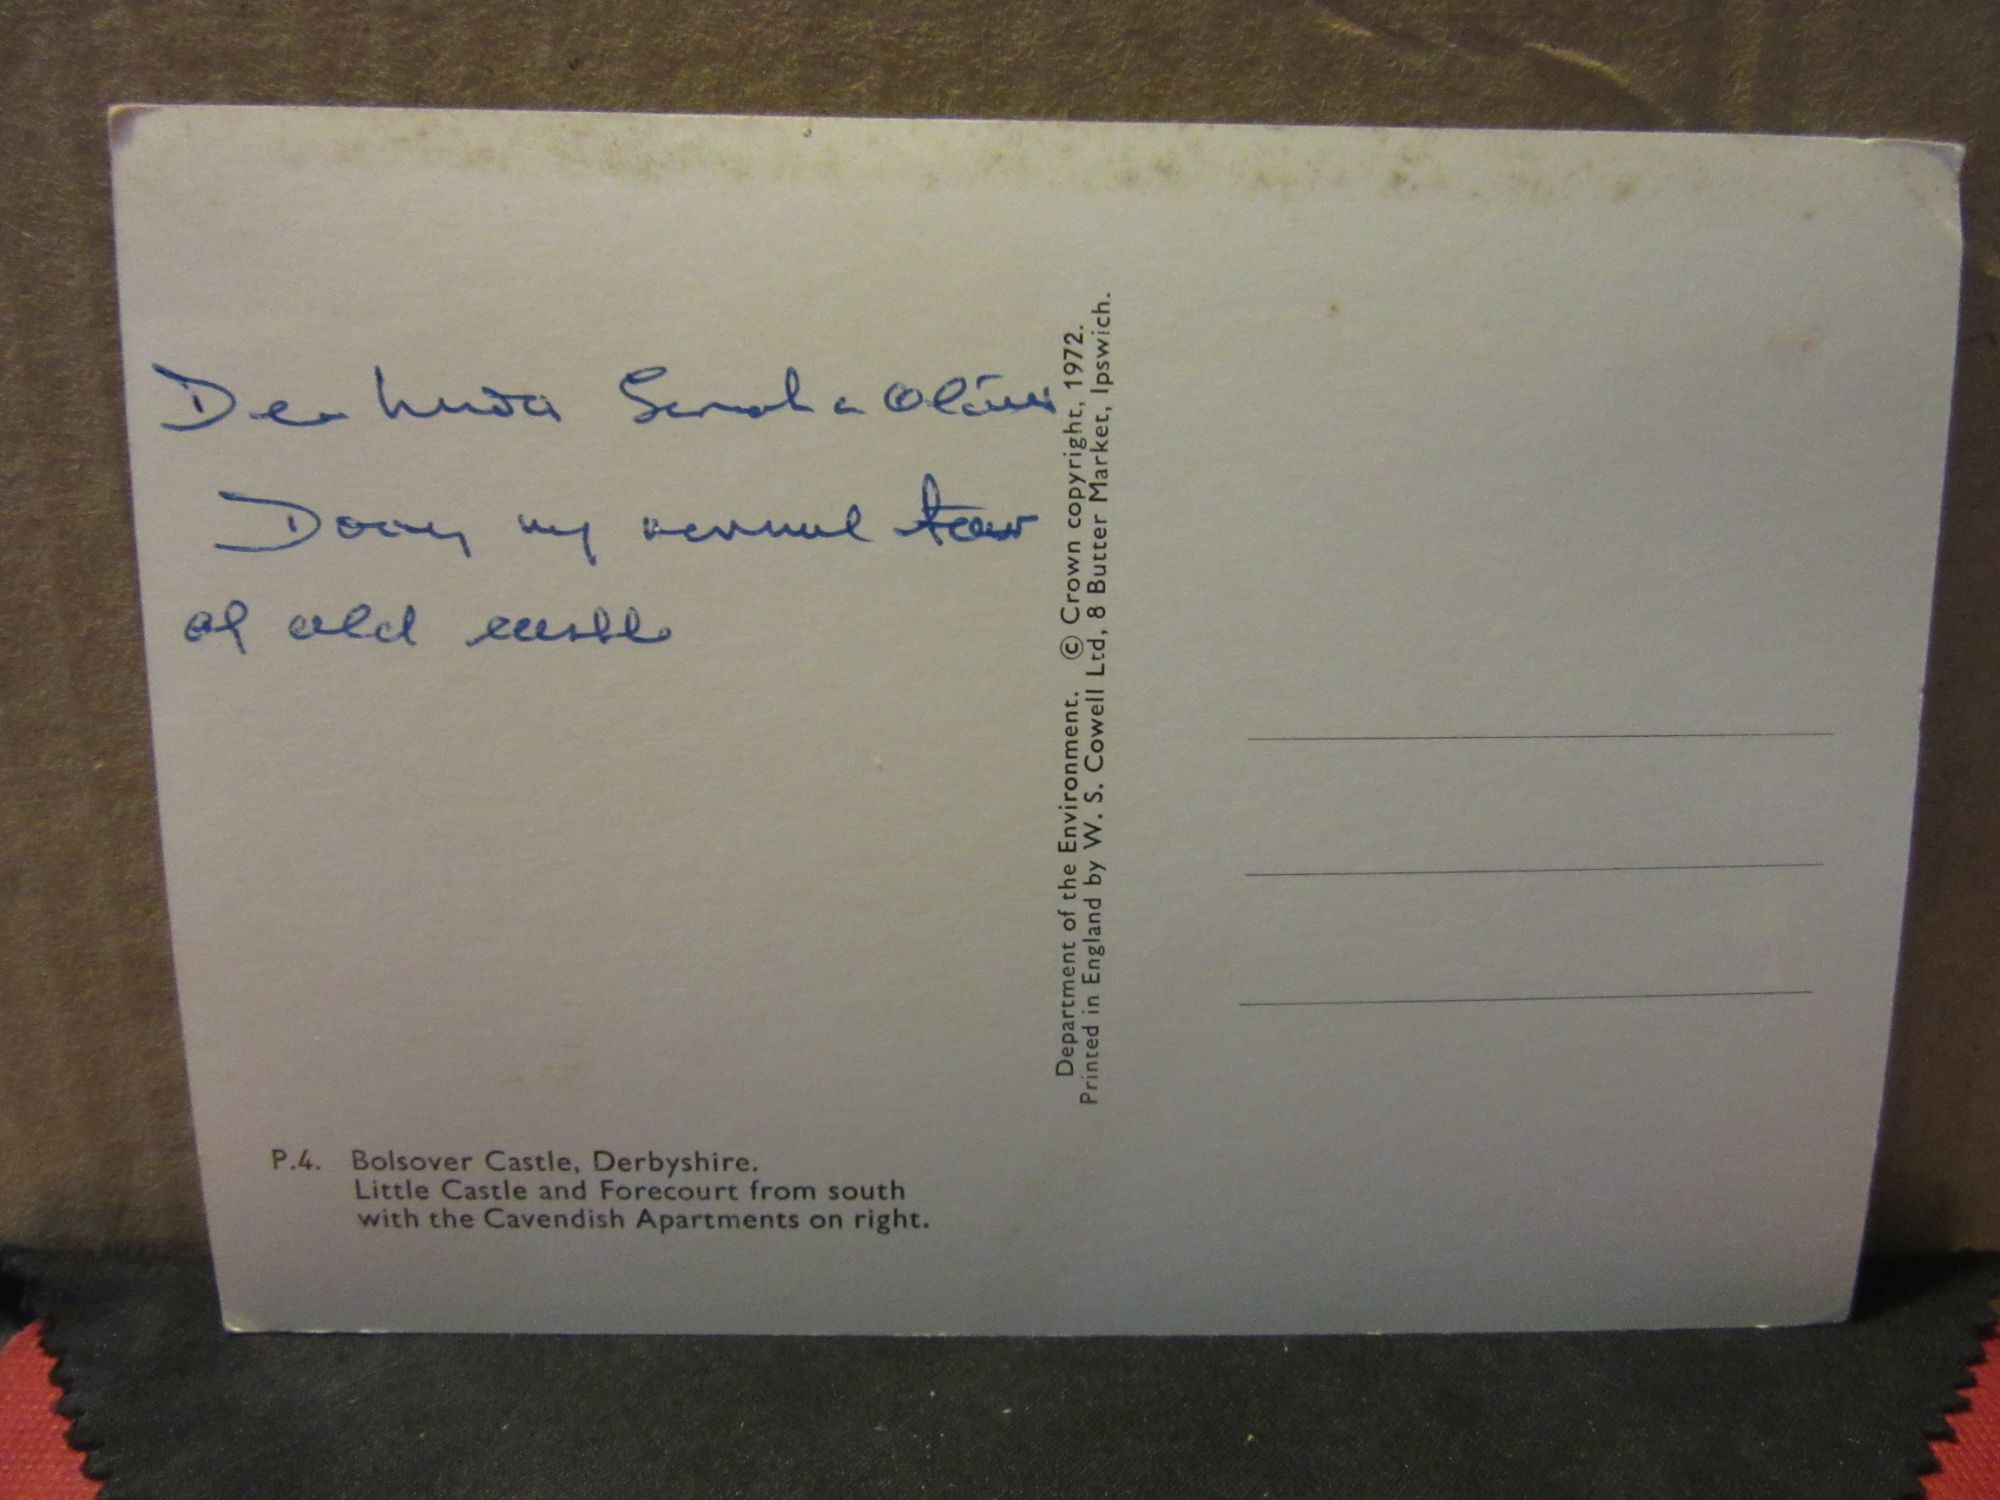 Dear Linda Sarah & Oliver
Doing my normal tour
of old castles
Department of the Environment. © Crown copyright, 1972.
Printed in England by W. S. Cowell Ltd, 8 Butter Market, Ipswich.
P.4. Bolsover Castle, Derbyshire.
Little Castle and Forecourt from south
with the Cavendish Apartments on right.